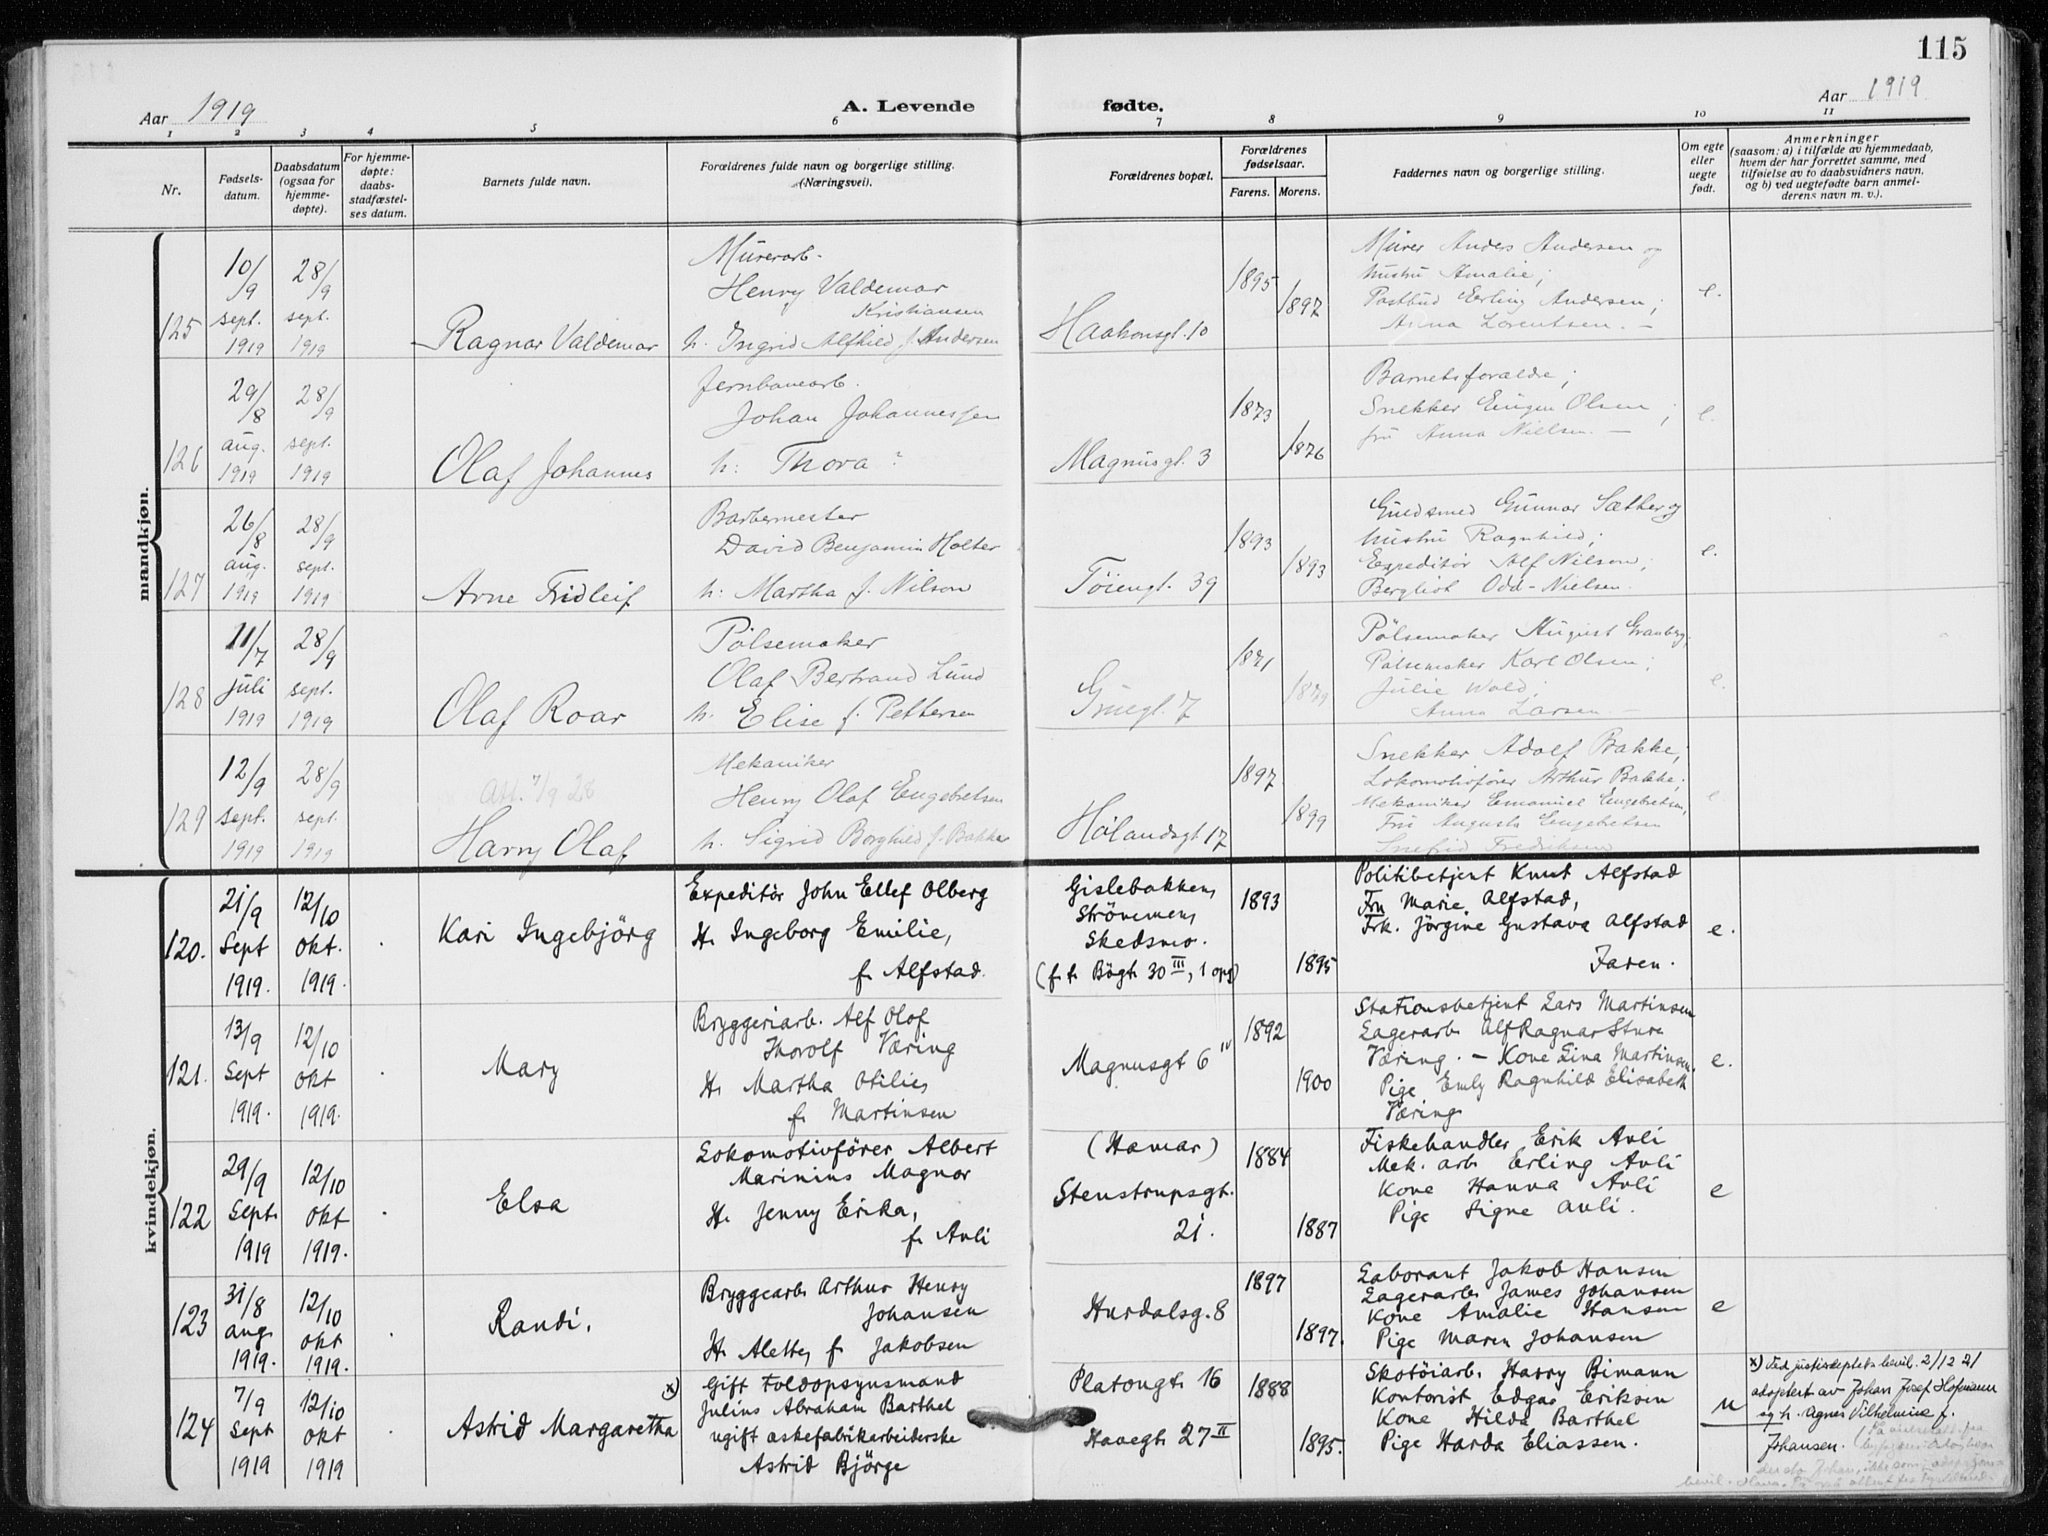 115
Aar 1919
A. Levende fødte.
Aar 1919
1 2 3 4 5 6 7 8 9 10 11
Nr.
Fødsels-
datum.
Daabsdatum
(ogsaa for
hjemme-
døpte).
For hjemme-
døpte:
daabs-
stadfæstel-
ses datum.
Barnets fulde navn.
Forældrenes fulde navn og borgerlige stilling.
(Næringsvei).
Forældrenes bopæl.
Forældrenes
fødselsaar.
Farens. Morens.
Faddernes navn og borgerlige stilling.
Om egte
eller
uegte
født.
Anmerkninger
(saasom: a) i tilfælde av hjemmedaab,
hvem der har forrettet samme, med
tilføielse av to daabsvidners navn,
og b) ved uegtefødte barn anmel-
derens navn m. v.).
mandkjøn.
125
10/9
sept.
1919
28/9
sept.
1919
Ragnar Valdemar
Murerarb.
Henry Valdemar
Kristiansen
h. Ingrid Alfhild f. Andersen
Haakonsgt. 10
1895
1897
Murer Anders Andersen og
hustru Amalie;
Postbud Erling Andersen;
Anna Lorentsen. —
e.
126
29/8
aug.
1919
28/9
sept.
1919
Olaf Johannes
Jernbanearb.
Johan Johannessen
h: Thora ?
Magnusgt. 3
1873
1876
Barnets forælde;
Snekker Eugen Olsen;
fru Anna Nielsen. —
e.
127
26/8
aug.
1919
28/9
sept.
1919
Arne Fridleif
Barbermester
David Benjamin Holter
h: Martha f. Nilson
Töiengt. 39
1893
1893
Guldsmed Gunnar Sæther og
hustru Ragnhild;
Expeditör Alf Nilson;
Bergliot Odd-Nielsen.
e.
128
11/7
juli
1919
28/9
sept.
1919
Olaf Roar
Pölsemaker
Olaf Bertrand Lund
h. Elise f. Pettersen
Gruegt. 7
1871
1879
Pölsemaker August Granberg;
Pölsemaker Karl Olsen;
Julie Wold;
Anna Larsen
e.
129
12/9
sept.
1919
28/9
sept.
1919
Att. 7/9 28
Harry Olaf
Mekaniker
Henry Olaf Engebretsen
h. Sigrid Borghild f. Bakke
Hölandsgt. 17
1897
1899
Snekker Adolf Bakke;
Lokomotivförer Arthur Bakke;
Mekaniker Emanuel Engebretsen,
Fru Augusta Engebretsen
Snefrid Fredriksen
e
kvindekjøn.
120.
21/9
Sept
1919.
12/10
Okt.
1919.
Kari Ingebjörg
Expeditör John Ellef Olberg
H. Ingeborg Emilie,
f. Alfstad.
Gislebakken,
Strömmen,
Skedsmo.
(f. t. Bögt. 30 III, 1 opg)
1893
1895
Politibetjent Knut Alfstad
Fru Marie Alfstad,
Frk. Jörgine Gustava Alfstad
Faren.
e.
121.
13/9
Sept
1919.
12/10
Okt
1919.
Mary
Bryggeriarb. Alf Olof
Thorolf Væring
H. Martha Otilie,
f. Martinsen
Magnusgt 6 IV
1892
1900
Stationsbetjent Lars Martinsen
Lagerarb. Alf Ragnar Sture
Væring. — Kone Lina Martinsen.
Pige Emly Ragnhild Elisabeth
Væring
e.
122
29/9
Sept.
1919
12/10
Okt
1919.
Elsa
Lokomotivförer Albert
Marinius Magnor
H. Jenny Erika,
f. Avli
(Hamar)
Stenstrupsgt.
21.
1884
1887
Fiskehandler Erik Avli
Mek. arb. Erling Avli
Kone Hanna Avli
Pige Signe Avli.
e
123
31/8
aug.
1919.
12/10
Okt
1919.
Randi.
Bryggearb. Arthur Henry
Johansen
H. Alette, f. Jakobsen
Hurdalsg. 8
1897
1897.
Laborant Jakob Hansen
Lagerarb. James Johansen
Kone Amalie Hansen
Pige Maren Johansen
e
124
7/9
Sept
1919
12/10
Okt
1919
Astrid Margaretha x)
Gift Toldopsynsmand
Julius Abraham Barthel
ugift æskefabrikarbeiderske
Astrid Björge
Platougt. 16
Havegt. 27 II
1888
1895.
Skotöiarb. Harry Bimann
Kontorist Edgar Eriksen
Kone Hilda Barthel
Pige Harda Eliassen.
u
x) Ved justisdeptets bevil. 2/12 21
adoptert av Johan Josef Hofmann
og h. Agnes Vilhelmine f.
Johansen.